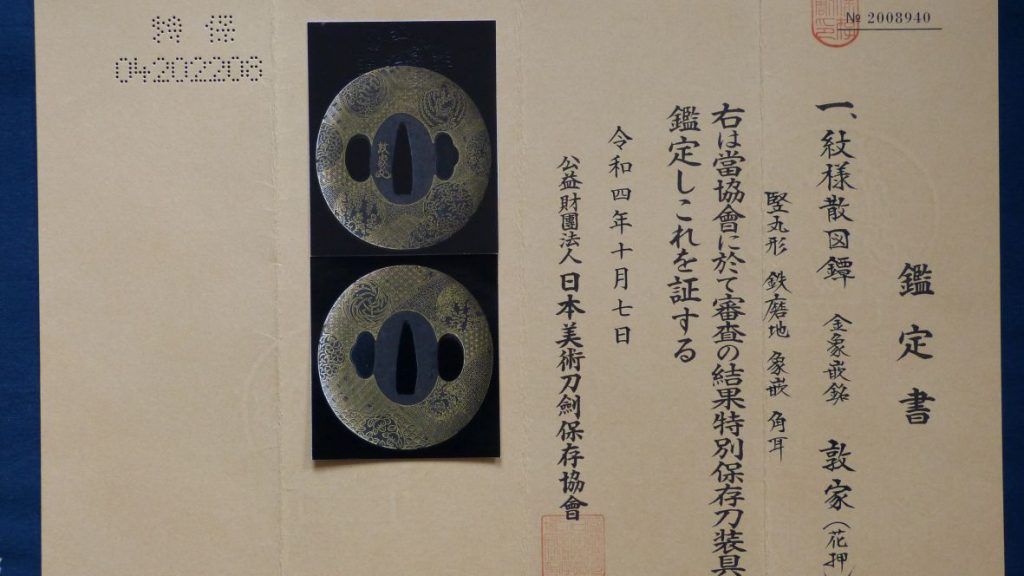 № 2008940
鑑定書
一、紋様散図鐔 金象嵌銘 敦家(花押)
竪丸形 鉄磨地 象嵌 角耳
右は當協會に於て審査の結果特別保存刀装具
鑑定しこれを証する
令和四年十月七日
公益財團法人 日本美術刀劍保存協會
特保
04202208